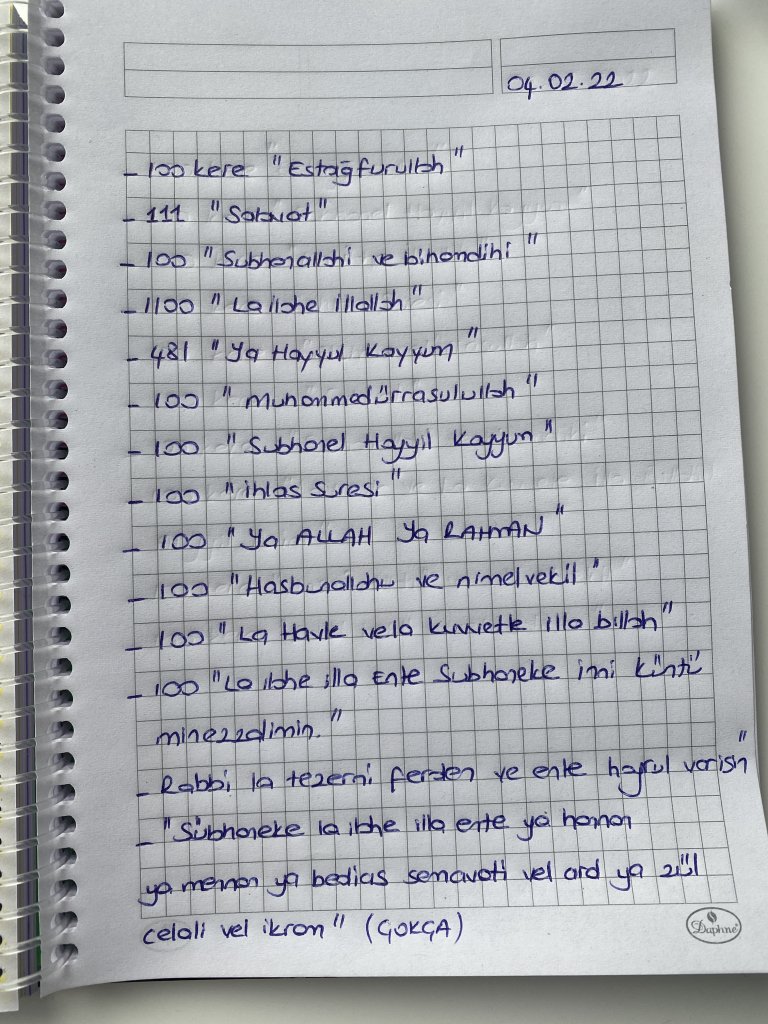 04.02.22
- 100 kere "Estağfurullah"
- 111 "Salavat"
- 100 "Subhanallahi ve bihamdihi"
- 1100 "La ilahe illallah"
- 481 "Ya Hayyul Kayyum"
- 100 "Muhammedürrasulullah"
- 100 "Subhanel Hayyil Kayyum"
- 100 "ihlas suresi"
- 100 "Ya ALLAH Ya RAHMAN"
- 100 "Hasbunallahu ve nimel vekil"
- 100 "La Havle vela kuvvette illa billah"
- 100 "La ilahe illa Ente Subhaneke inni küntü
minezzalimin."
- Rabbi la tezerni ferden ve ente hayrul varisin"
- "Sübhaneke la ilahe illa ente ya hannan
ya mennan ya bedias semavati vel ard ya zül
celali vel ikram" (ÇOKÇA)
Daphne